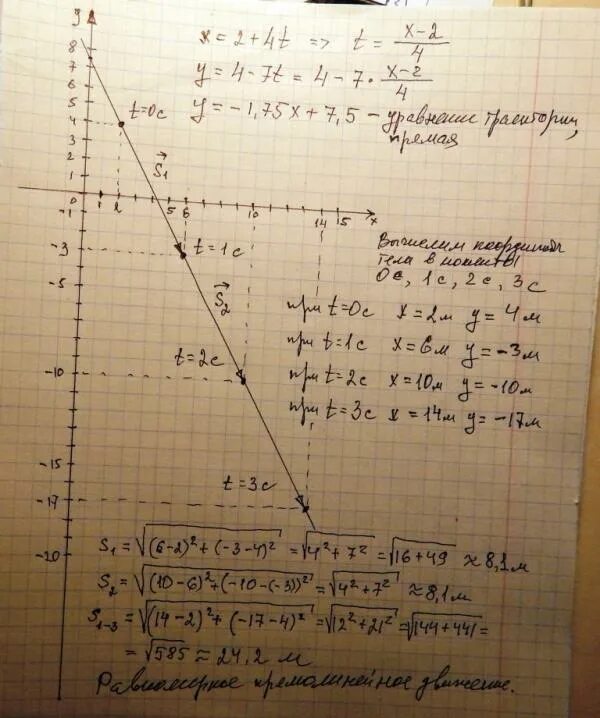 x = 2 + 4t => t = (x-2)/4
y = 4 - 7t = 4 - 7 · (x-2)/4
y = -1,75x + 7,5 - уравнение траектории,
прямая
y
8
7
6
5
4
3
2
1
0
-1
-3
-5
-10
-15
-17
-20
1 2 5 6 10 14 15 x
t=0c
S⃗1
t=1c
S⃗2
t=2c
t=3c
Вычислим координаты
тела в моменты
0c, 1c, 2c, 3c
при t=0c x=2м y=4м
при t=1c x=6м y=-3м
при t=2c x=10м y=-10м
при t=3c x=14м y=-17м
S1 = √((6-2)² + (-3-4)²) = √(4²+7²) = √(16+49) ≈ 8,1м
S2 = √((10-6)² + (-10-(-3))²) = √(4²+7²) ≈ 8,1м
S1-3 = √((14-2)² + (-17-4)²) = √(12²+21²) = √(144+441) =
= √585 ≈ 24,2 м
Равномерное прямолинейное движение.